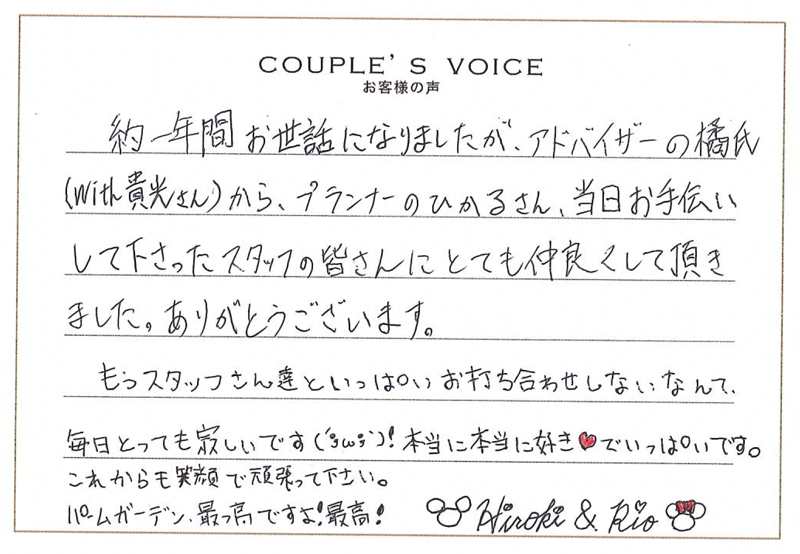 COUPLE'S VOICE
お客様の声
約一年間お世話になりましたが、アドバイザーの橘氏
(With貴光さん)から、プランナーのひかるさん、当日お手伝い
して下さったスタッフの皆さんにとても仲良くして頂き
ました。ありがとうございます。
もうスタッフさん達といっぱいお打ち合わせしないなんて、
毎日とっても寂しいです(´;ω;`)!本当に本当に好き♥でいっぱいです。
これからも笑顔で頑張って下さい。
パームガーデン、最っ高ですよ!最高!
Hiroki & Rio